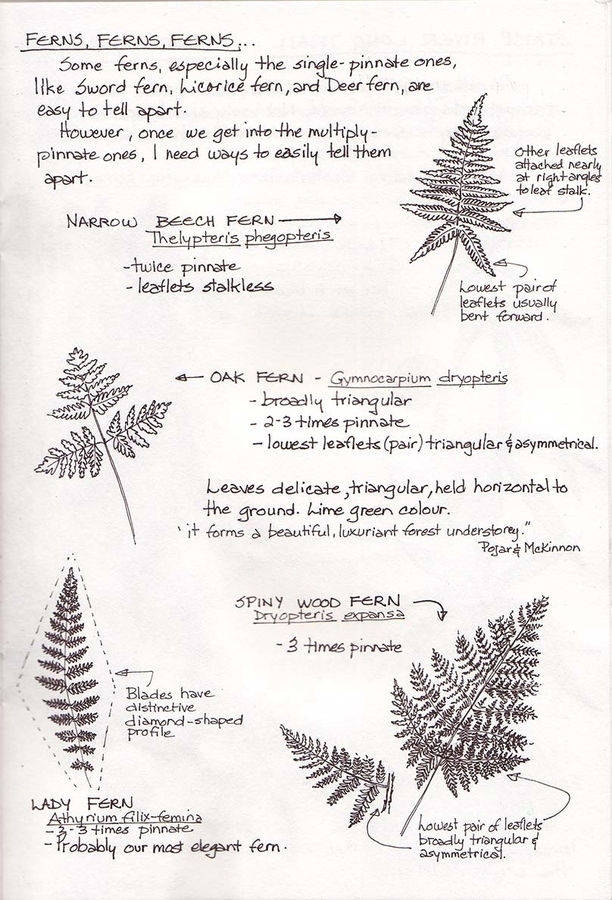 FERNS, FERNS, FERNS...
Some ferns, especially the single-pinnate ones,
like Sword fern, Licorice fern, and Deer fern, are
easy to tell apart.
However, once we get into the multiply-
pinnate ones, I need ways to easily tell them
apart.
Other leaflets
attached nearly
at right angles
to leaf stalk.
NARROW BEECH FERN
Thelypteris phegopteris
-twice pinnate
- leaflets stalkless
Lowest pair of
leaflets usually
bent forward.
OAK FERN - Gymnocarpium dryopteris
- broadly triangular
- 2-3 times pinnate
- lowest leaflets (pair) triangular & asymmetrical.
Leaves delicate, triangular, held horizontal to
the ground. Lime green colour.
"it forms a beautiful, luxuriant forest understorey."
Pojar & McKinnon
SPINY WOOD FERN
Dryopteris expansa
- 3 times pinnate
Blades have
distinctive
diamond-shaped
profile
LADY FERN
Athyrium filix-femina
- 2-3 times pinnate
- Probably our most elegant fern.
Lowest pair of leaflets
broadly triangular &
asymmetrical.